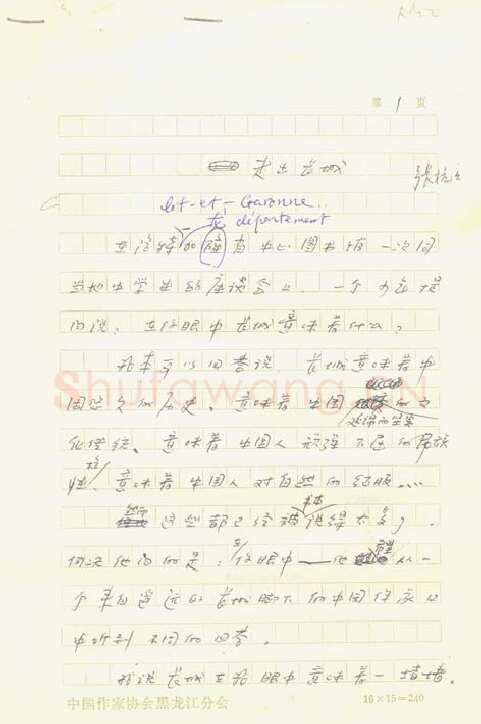 第 1 页
走出长城
张抗抗
Lot-et-Garonne
département
在洛特-加 省中心图书馆一次同
当地中学生的座谈会上，一个 提
问说：在你眼中长城意味着什么？
我本可以回答说 长城意味着中
国悠久的历史、意味着中国 的文
化传统、意味着中国人顽强不屈的民族
性格、意味着中国人对自然的征服……
Shufawang.CN
这些都已经被 得太多了。
何况他问的是：在你眼中——他 从一
个来自遥远的长城脚下的中国作家口
中听到不同的回答。
我说长城在我眼中意味着一堵墙。
中国作家协会黑龙江分会
16×15=240